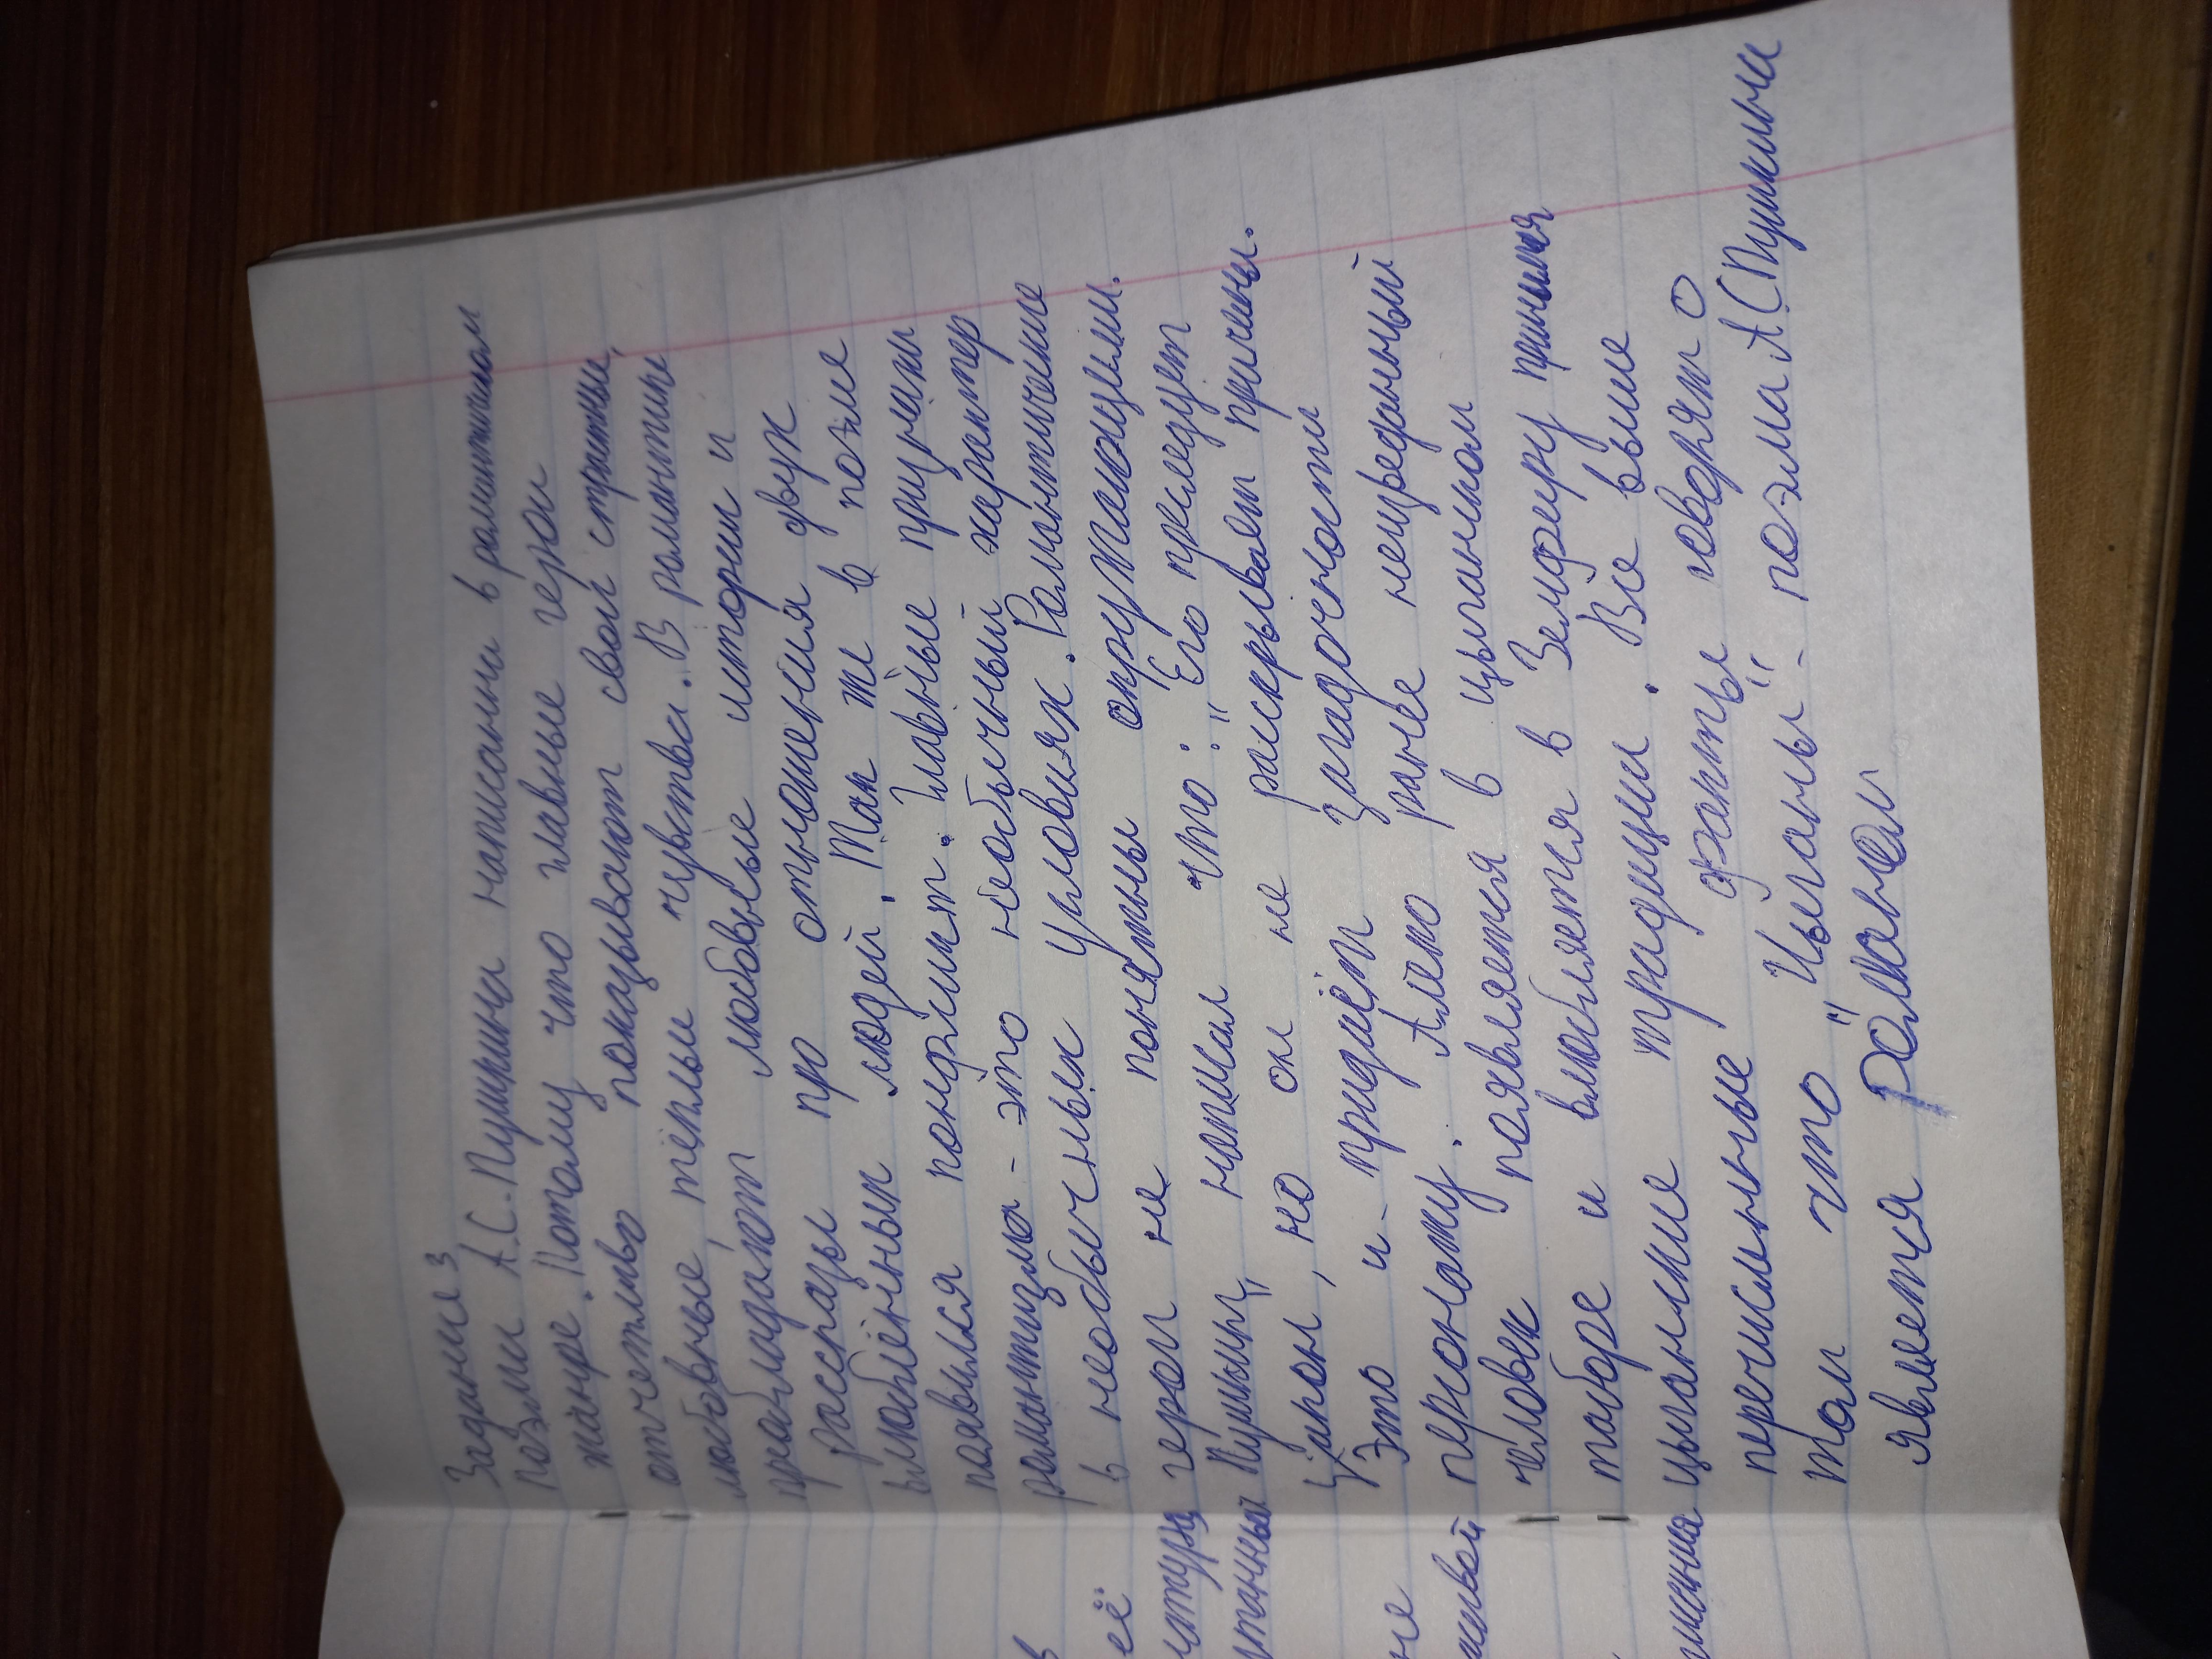 Задание 3
Поэмы А.С. Пушкина написаны в романтичном
жанре. Потому что главные герои
отчетливо показывают свои страстные,
любовные, тёплые чувства. В романтике
преобладают любовные истории и
рассказы про отношения двух
влюблённых людей. Так же в поэме
появился конфликт. Главные
романтизма - это необычный характер
в необычных условиях. Романтические
герои не понятны окружающими.
Пушкин написал что: "Его преследует
закон", но он не раскрывает причины.
Это и придаёт загадочности
персонажу. Алеко ранее невиданный
человек появляется в цыганском
таборе и влюбляется в Земфиру принимая
цыганские традиции. Все выше
перечисленные факты говорят о
том что "Цыганы" - поэма А С Пушкина
является романом
в
её